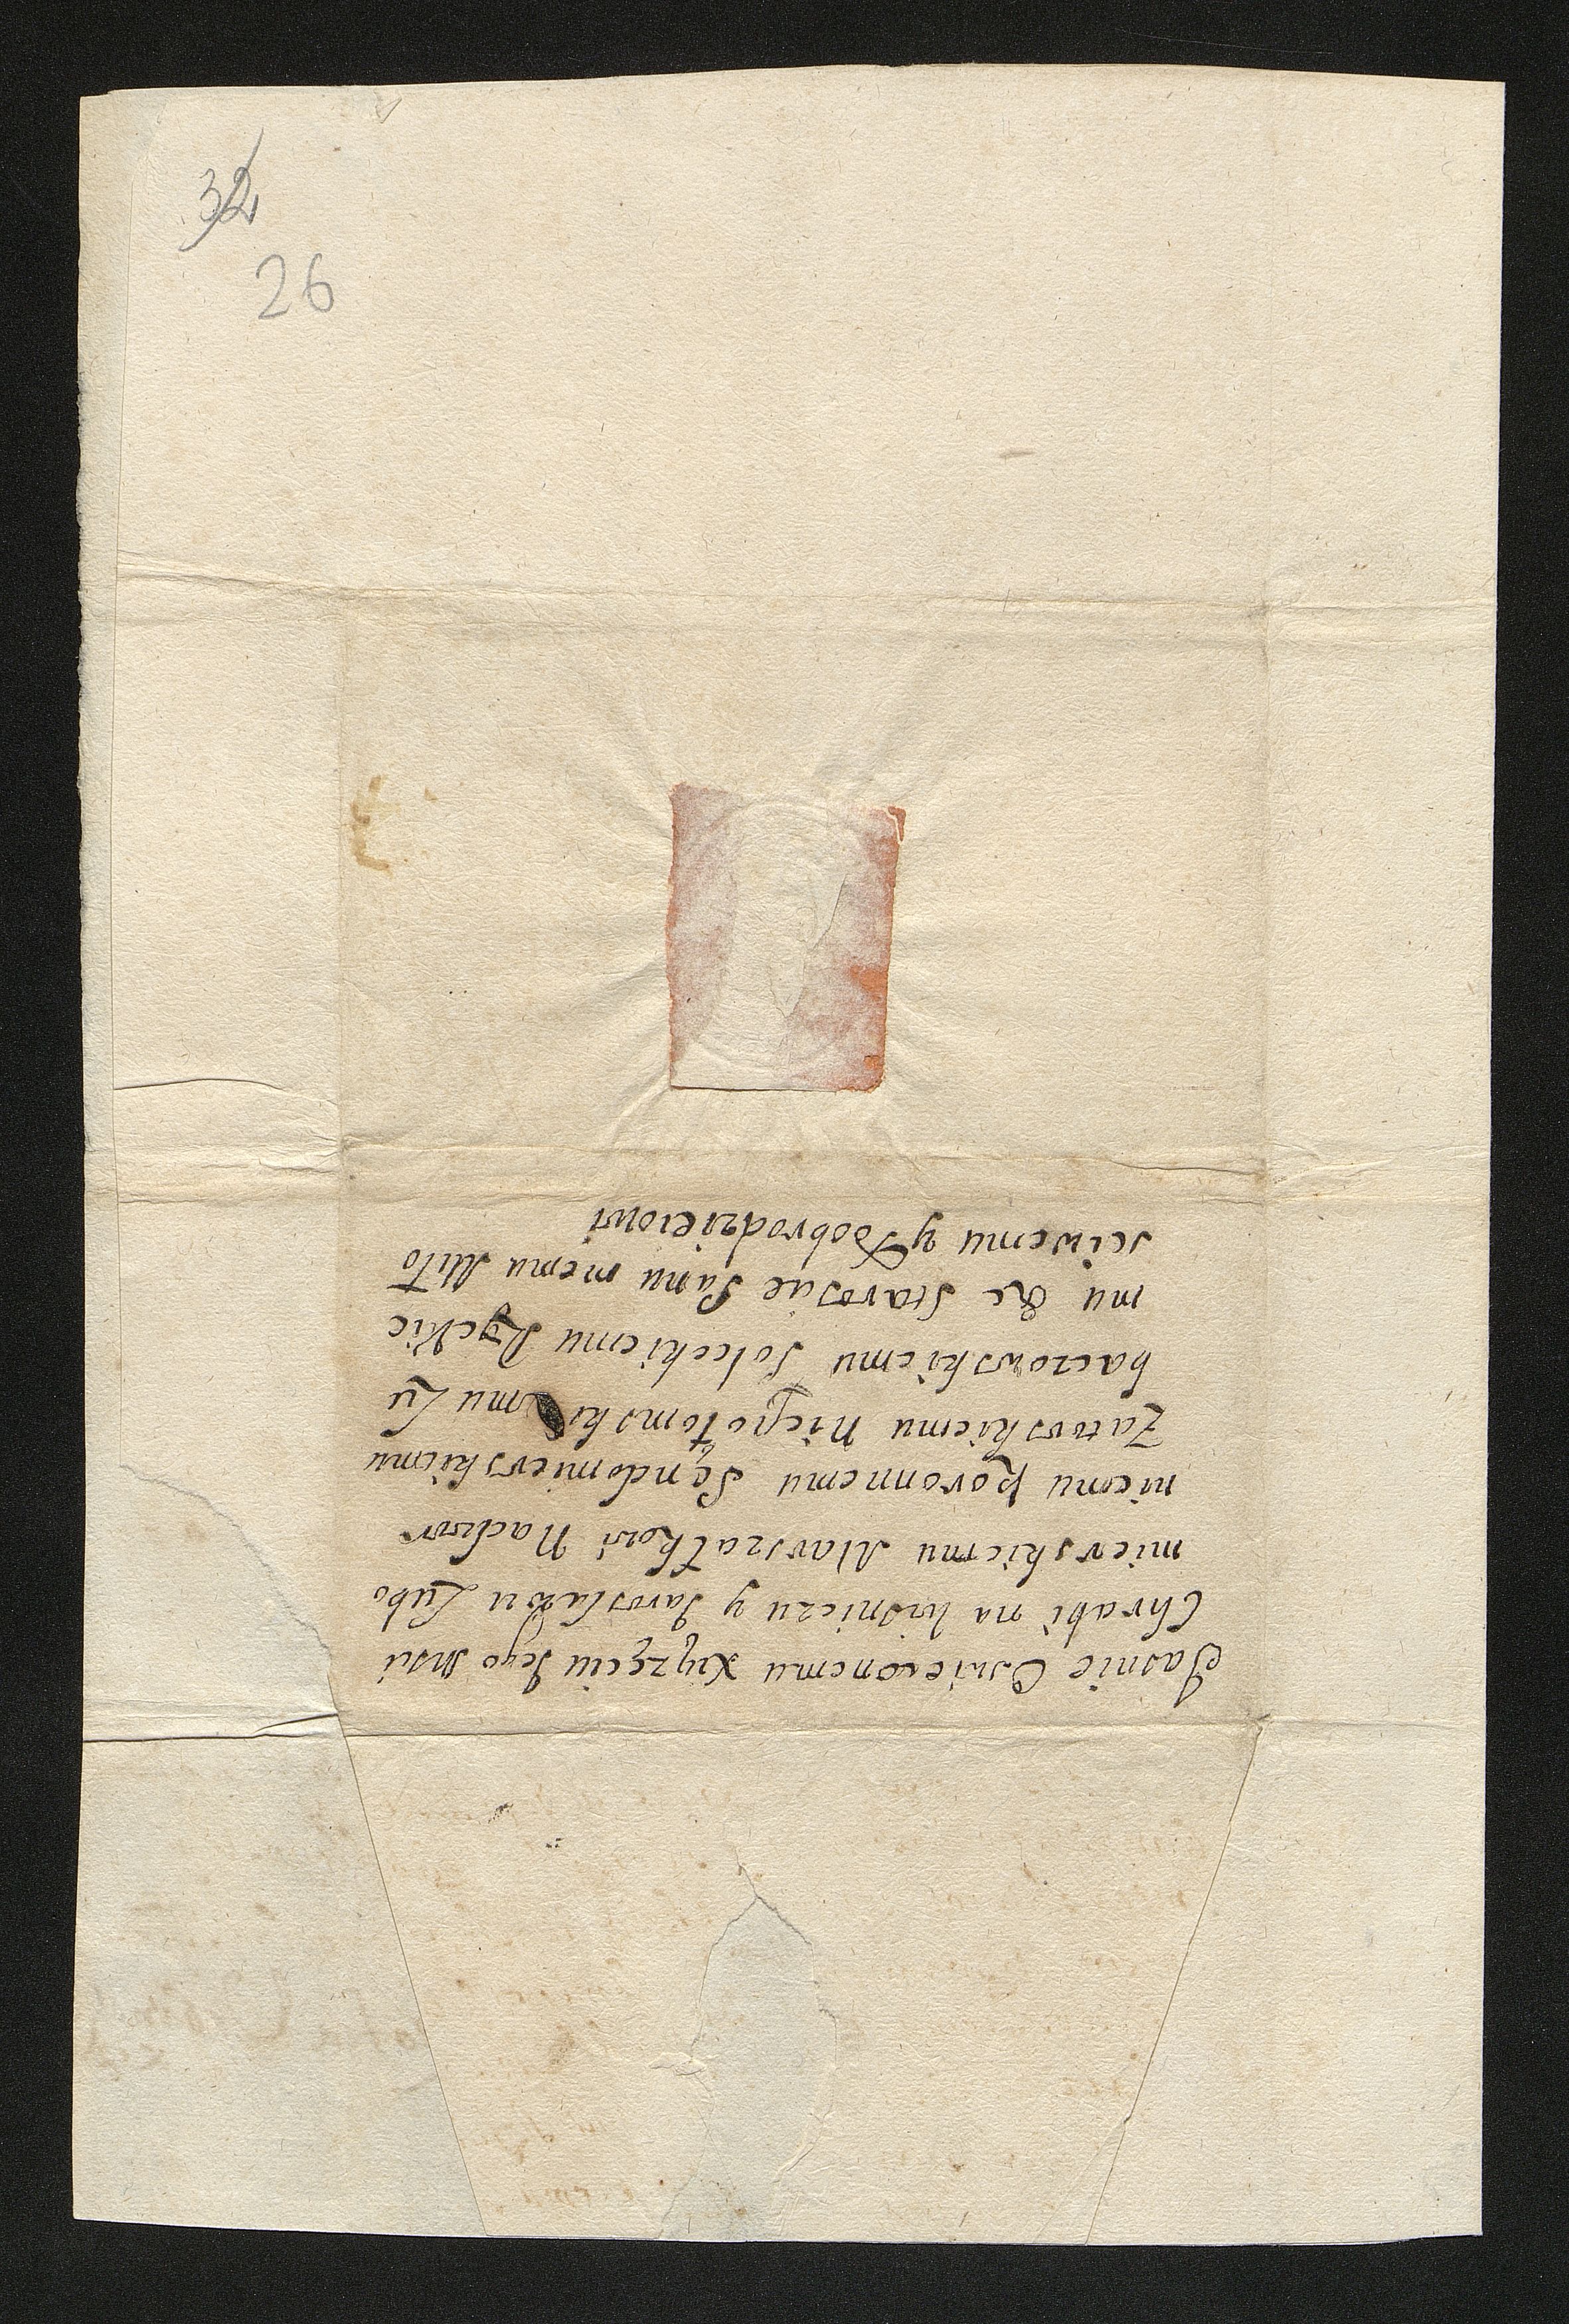 32
26
Jasnie Oswieconemu Xiążęciu Jego Msci
Chrabi na Wiśniczu y Jarosławiu Lubo
mierskiemu Marszałkowi Nadwor
niemu Koronnemu Sęndomierskiemu
Zatorskiemu Niepołomski mu Lu
baczowskiemu Soleckiemu Ryckie
mu &c Staroscie Panu memu Miło
sciwemu y Dobrodzieiowi